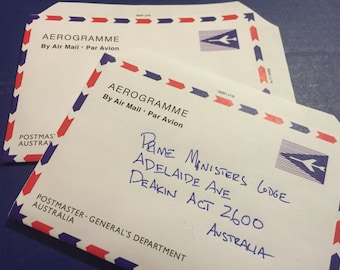 AEROGRAMME
By Air Mail · Par Avion
POSTMASTER
AUSTRALIA
AEROGRAMME
By Air Mail · Par Avion
PRIME MINISTERS LODGE
ADELAIDE AVE
DEAKIN ACT 2600
AUSTRALIA
POSTMASTER - GENERAL'S DEPARTMENT
AUSTRALIA